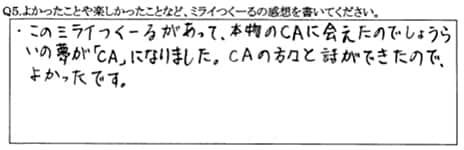 Q5.よかったことや楽しかったことなど、ミライつくーるの感想を書いてください。
・このミライつくーるがあって、本物のCAに会えたのでしょうら
いの夢が「CA」になりました。CAの方々と話ができたので、
よかったです。